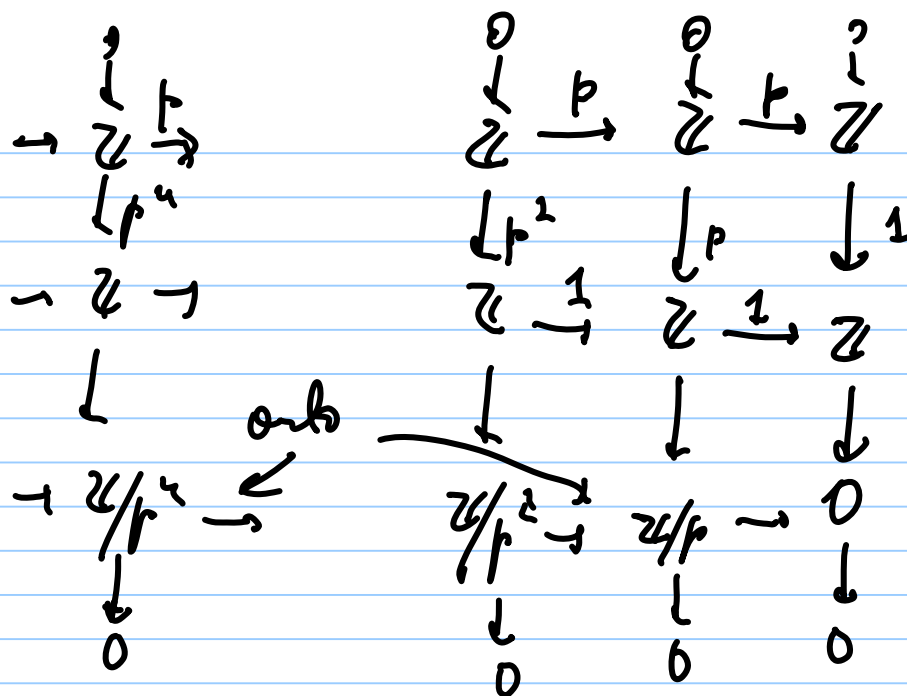 0 0 0 0
→ ℤ p→ ℤ p→ ℤ p→ ℤ
↓pⁿ ↓p² ↓p ↓1
→ ℤ → ℤ 1→ ℤ 1→ ℤ
↓ ↓ ↓ ↓
onto
→ ℤ/pⁿ → ℤ/p² → ℤ/p → 0
↓ ↓ ↓ ↓
0 0 0 0